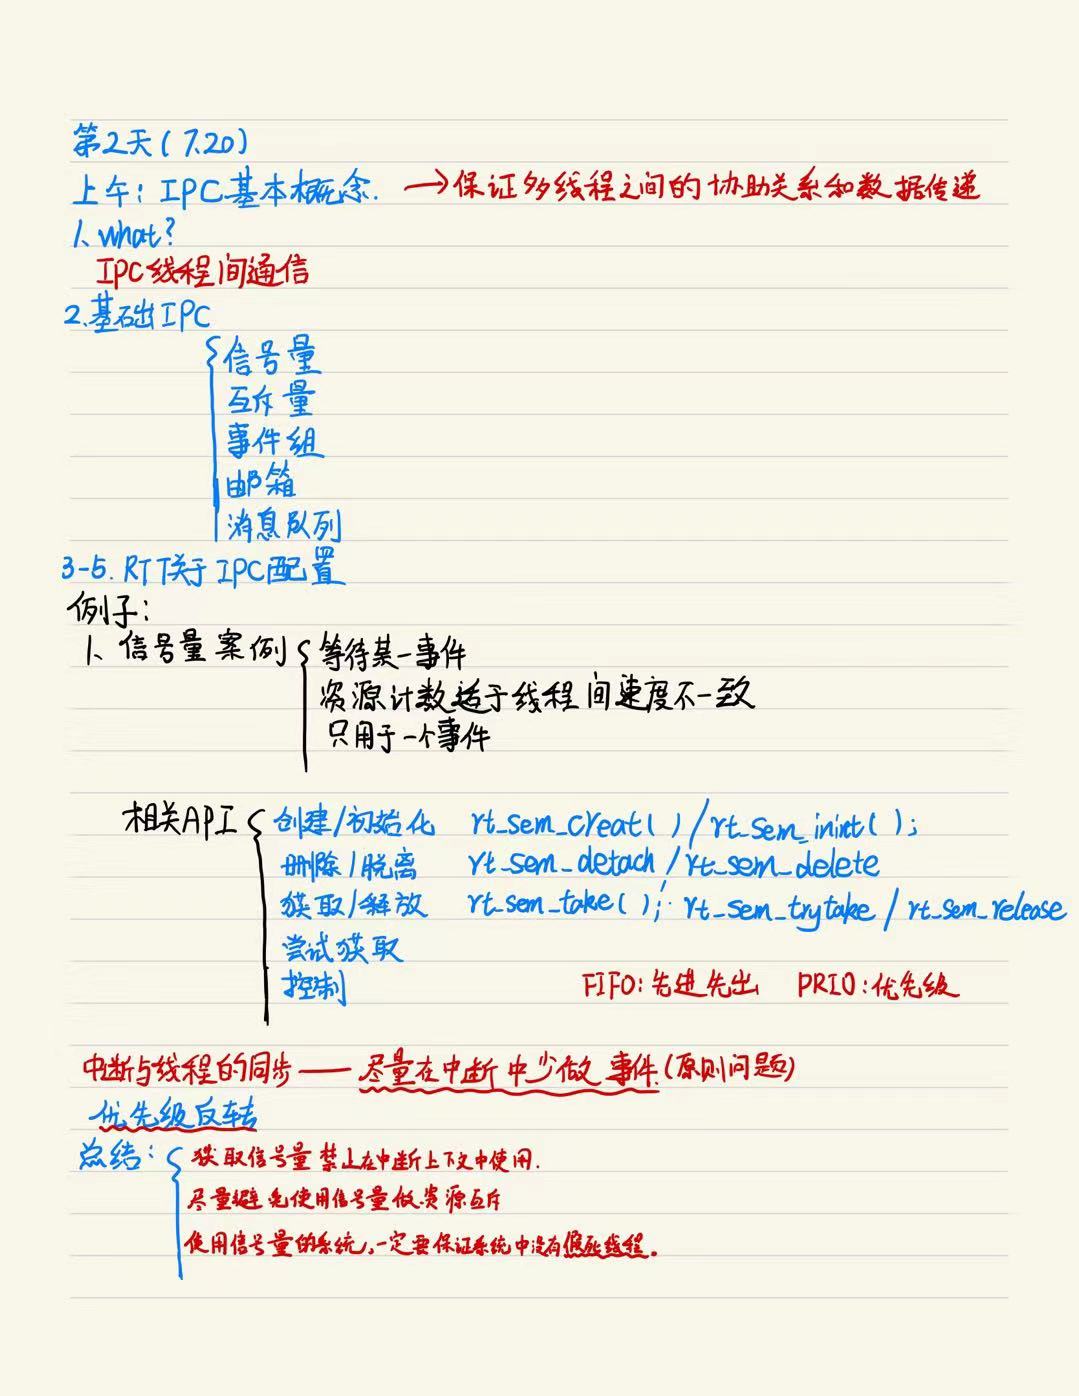 第2天(7.20)
上午: IPC基本概念. →保证多线程之间的协助关系和数据传递
1、what?
IPC线程间通信
2.基础IPC
信号量
互斥量
事件组
邮箱
消息队列
3-5. RTT关于IPC配置
例子:
1、信号量案例 等待某一事件
资源计数适于线程间速度不一致
只用于一个事件
相关API 创建/初始化 rt_sem_creat( )/rt_sem_inint( );
删除/脱离 rt_sem_detach/rt_sem_delete
获取/释放 rt_sem_take( ); rt_sem_trytake/rt_sem_release
尝试获取
控制 FIFO:先进先出 PRIO:优先级
中断与线程的同步——尽量在中断中少做事件(原则问题)
优先级反转
总结: 获取信号量禁止在中断上下文中使用.
尽量避免使用信号量做资源互斥
使用信号量的系统,一定要保证系统中没有假死线程。